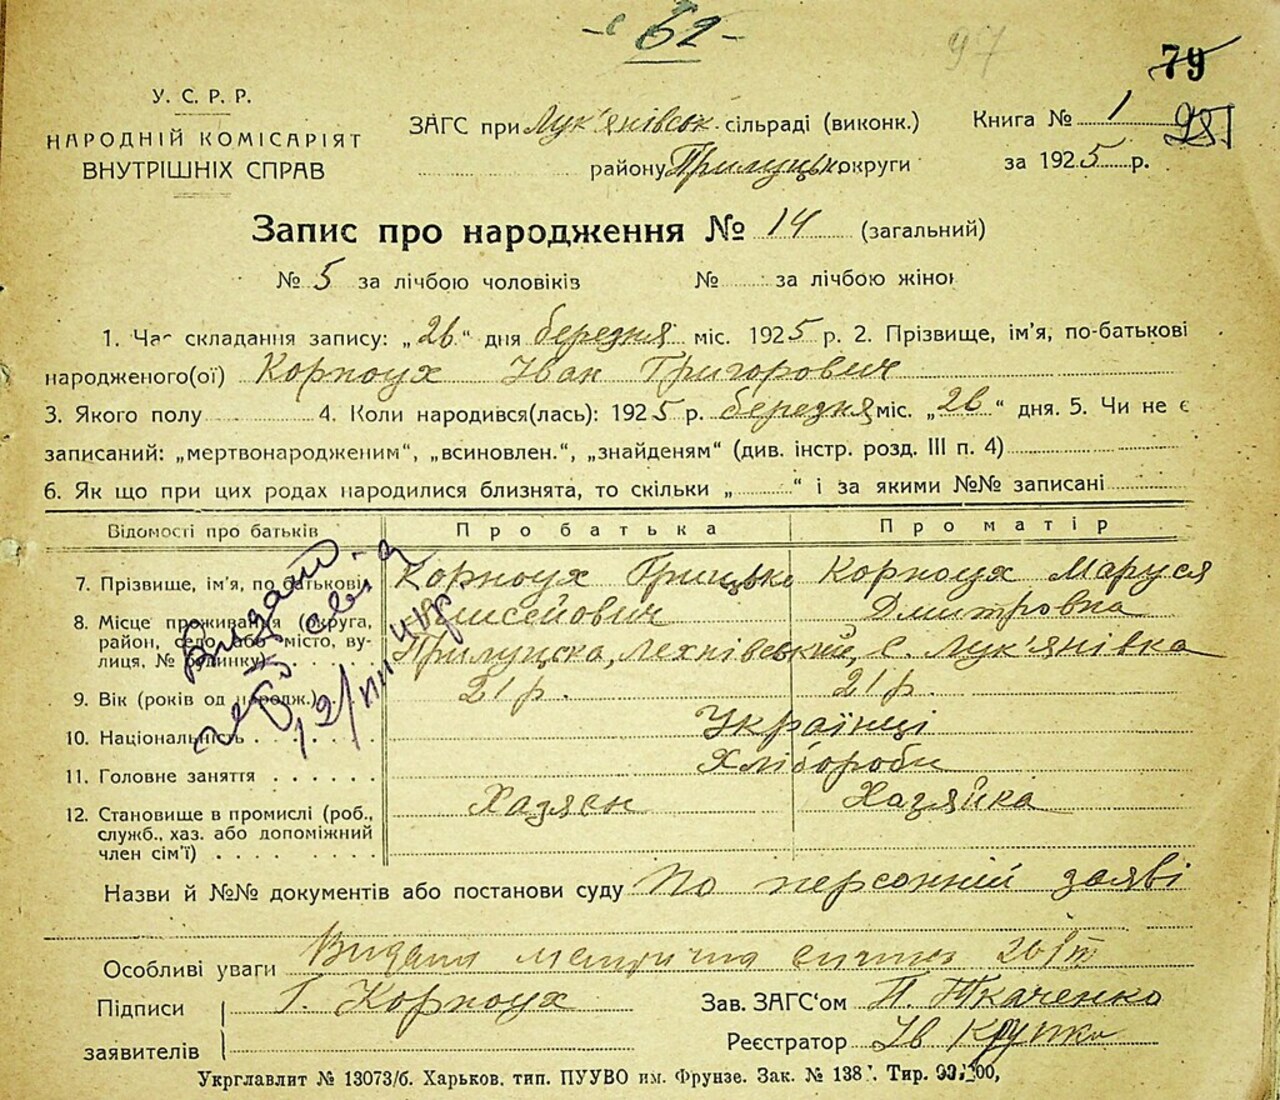 62
97
79
У. С. Р. Р.
НАРОДНІЙ КОМІСАРІЯТ
ВНУТРІШНІХ СПРАВ
ЗАГС при Лук'янівськ. сільраді (виконк.)
району Прилуцьк. округи
Книга № 1
за 1925 р.
Запис про народження № 14 (загальний)
№ 5 за лічбою чоловіків № за лічбою жінок
1. Час складання запису: „26“ дня березня міс. 1925 р. 2. Прізвище, ім'я, по-батькові
народженого(ої) Корноух Іван Григорович
3. Якого полу 4. Коли народився(лась): 1925 р. березня міс. „26“ дня. 5. Чи не є
записаний: „мертвонародженим“, „всиновлен.“, „знайденям“ (див. інстр. розд. III п. 4)
6. Як що при цих родах народилися близнята, то скільки „ “ і за якими №№ записані
Відомості про батьків Про батька Про матір
7. Прізвище, ім'я, по батькові Корноух Грицько Корноух Маруся
Дмитровна
8. Місце проживання (округа,
район, село або місто, ву-
лиця, № будинку) Прилуцька, Лехнівський, с. Лук'янівка
9. Вік (років од народж.) 21 р. 21 р.
10. Національність Українці
11. Головне заняття Хлібороби
12. Становище в промислі (роб., Хазяєн Хазяйка
служб., хаз. або допоміжний
член сім'ї)
Видано
Назви й №№ документів або постанови суду По персонній заяві
Особливі уваги
Підписи Г. Корноух Зав. ЗАГС'ом П. Ткаченко
заявителів Реєстратор Ів
Укрглавлит № 13073/б. Харьков. тип. ПУУВО им. Фрунзе. Зак. № 138 Тир.